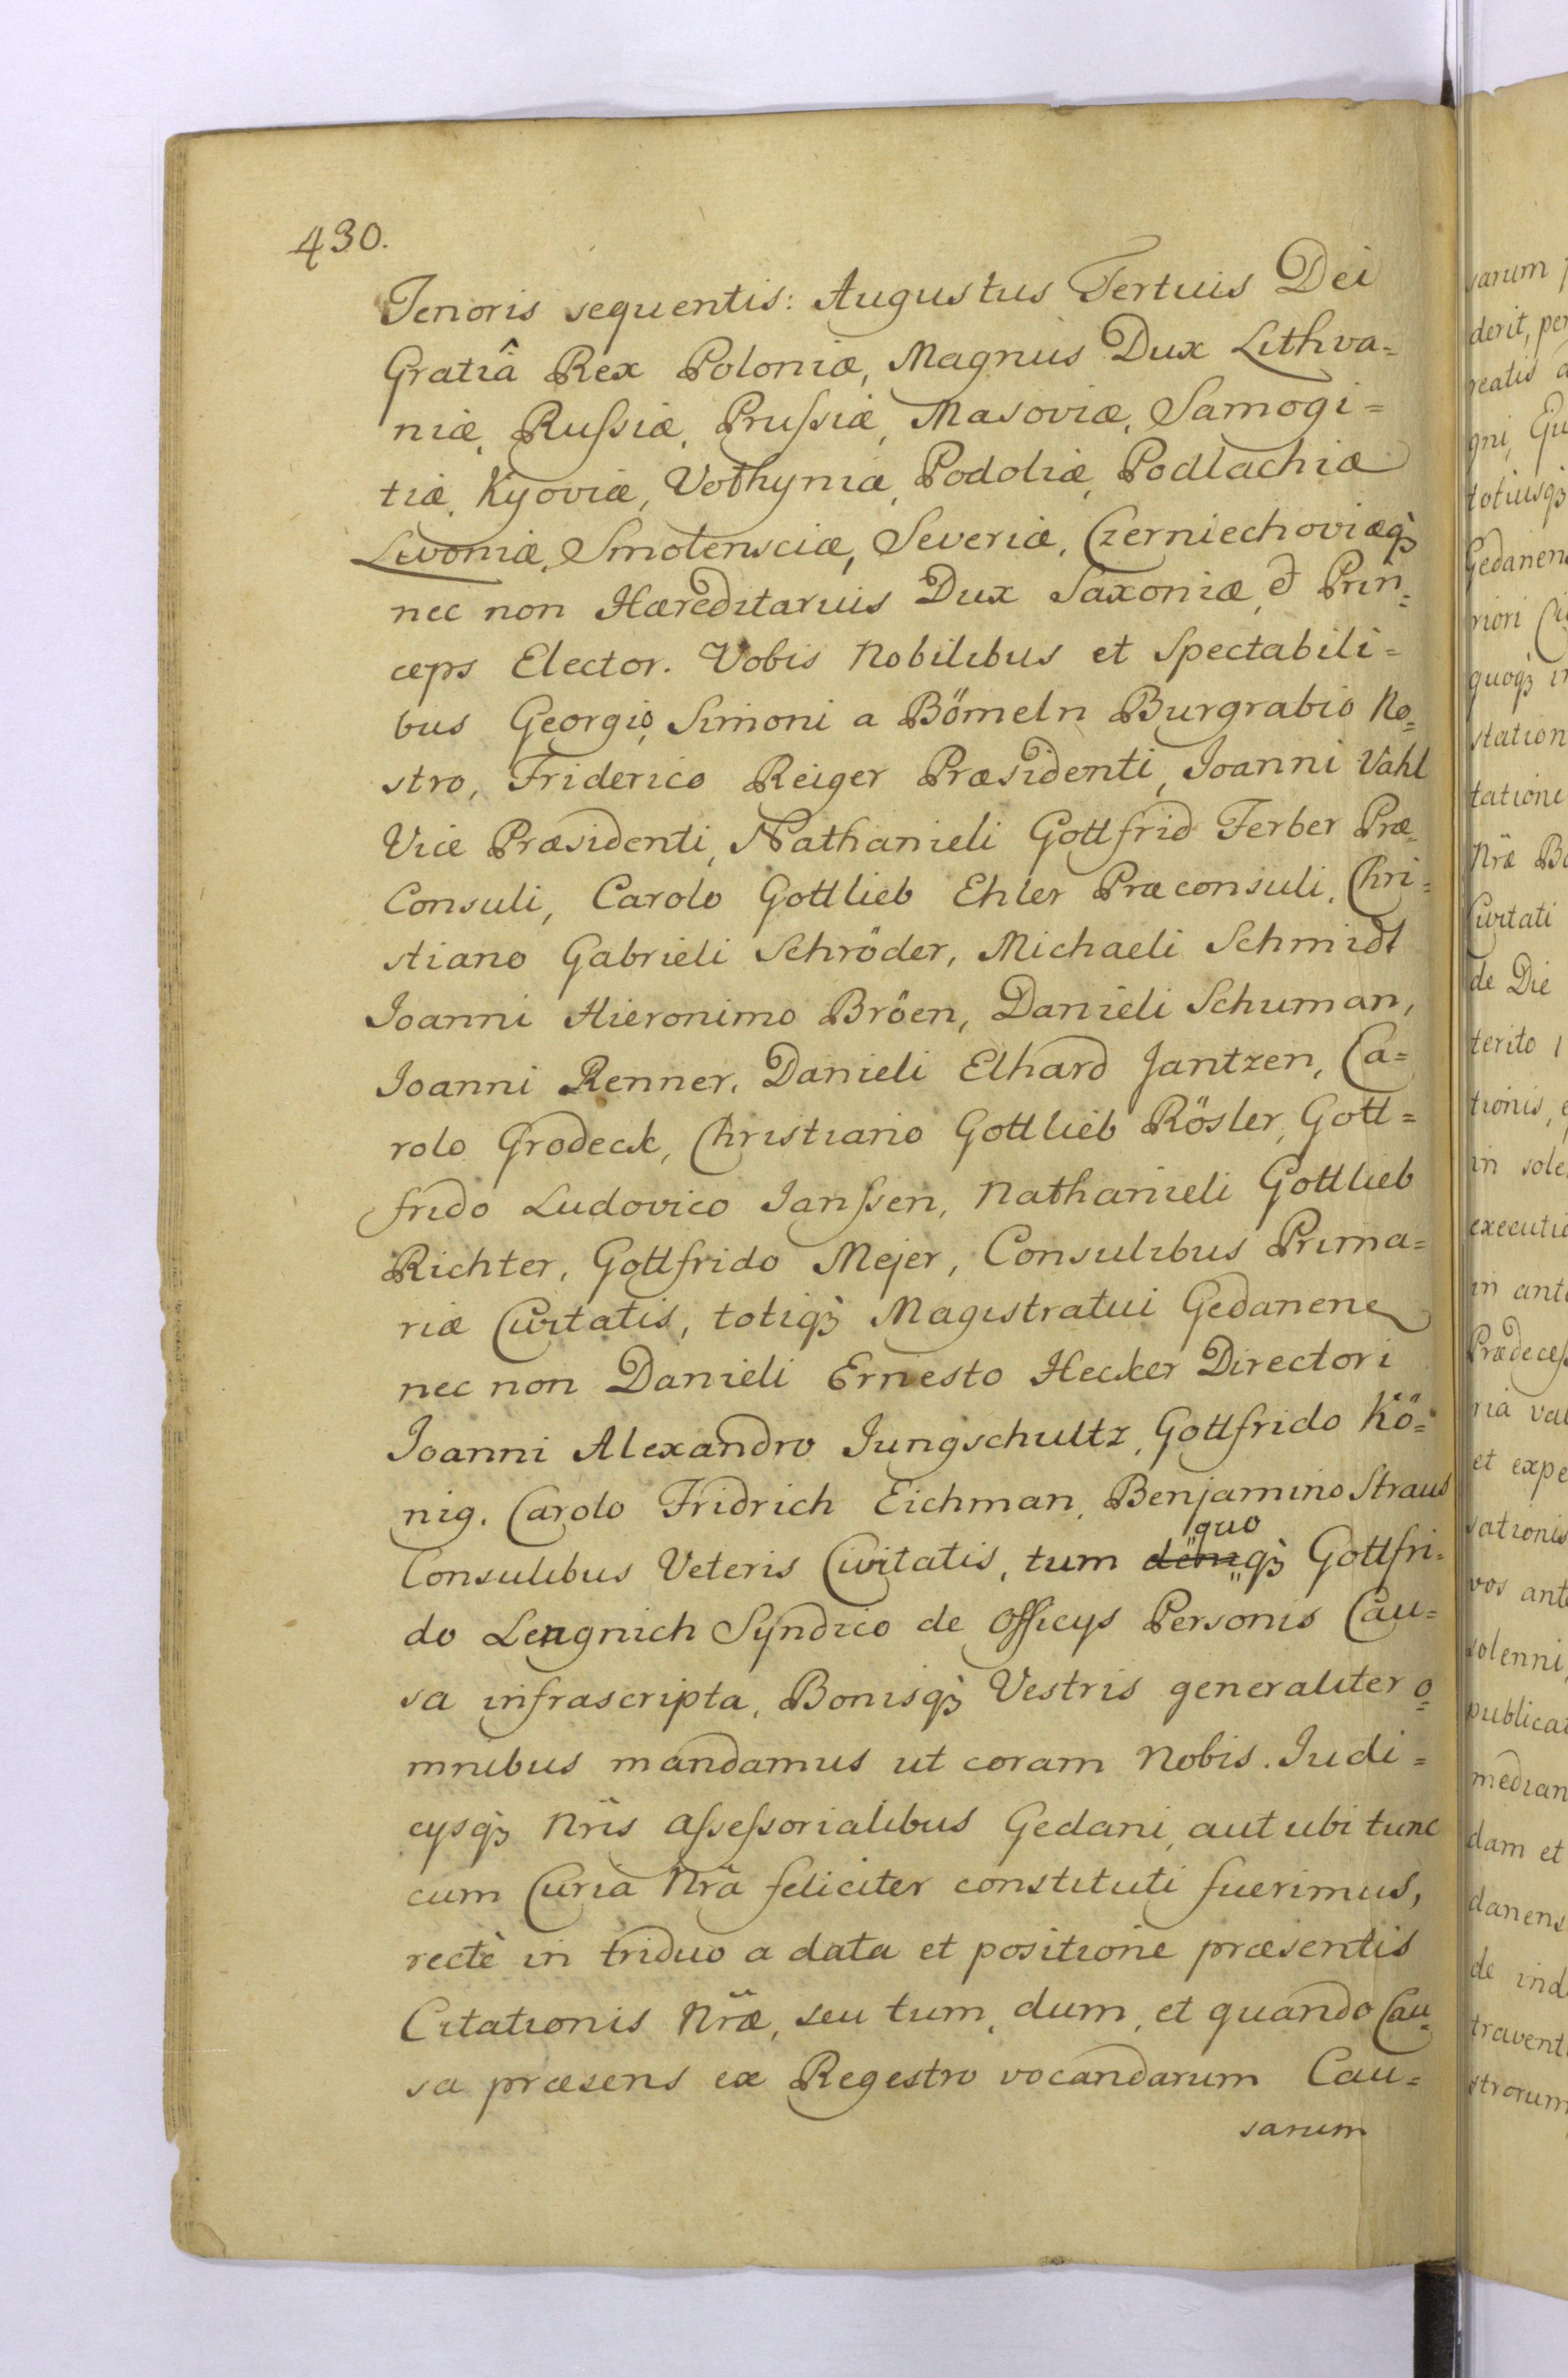 430.
Tenoris sequentis: Augustus Tertius Dei
Gratiâ Rex Poloniæ, Magnus Dux Lithva=
niæ, Rusſiæ, Prusſiæ, Masoviæ, Samogi=
tiæ, Kyoviæ, Volhyniæ, Podoliæ, Podlachiæ
Livoniæ, Smolensciæ, Severiæ, Czerniechoviæq̀ꝫ
nec non Hæreditarius Dux Saxoniæ, et Prin=
ceps Elector. Vobis Nobilibus et Spectabili=
bus Georgio, Simoni a Bömeln Burgrabio No=
stro, Friderico Reiger Præsidenti, Joanni Vahl
Vice Præsidenti, Nathanieli Gottfrid Ferber Præ=
Consuli, Carolo Gottlieb Ehler Præconsuli, Chri=
stiano Gabrieli Schröder, Michaeli Schmidt
Joanni Hieronimo Bröen, Danieli Schuman,
Joanni Renner, Danieli Elhard Jantzen, Ca=
rolo Grodeck, Christiano Gottlieb Rösler, Gott=
frido Ludovico Janſsen, Nathanieli Gottlieb
Richter, Gottfrido Mejer, Consulibus Prima=
riæ Civitatis, totiq̀ꝫ Magistratui Gedanen
nec non Danieli Ernesto Hecker Directori
Joanni Alexandro Jungschultz, Gottfrido Kö=
nig, Carolo Fridrich Eichman, Benjamino Straus
quo
Consulibus Veteris Civitatis, tum q̀ꝫ Gottfri=
do Lengnich Syndico de Officys Personis Cau=
sa infrascripta, Bonisq̀ꝫ Vestris generaliter o=
mnibus mandamus ut coram Nobis. Judi=
cysq̀ꝫ Nr̃is Aſseſsorialibus Gedani, aut ubi tunc
cum Curia Nr̃a feliciter constituti fuerimus,
rectè in triduo a data et positione præsentis
Citationis Nr̃æ, seu tum, dum, et quando Cau=
sa præsens ex Regestro vocandarum Cau=
sarum
sarum
derit, per
reatis
gni,
totiusq̀ꝫ
Gedanen
riori
quoq̀ꝫ
station
tatione
Nr̃æ
Civitati
de Die
terito
tionis,
in sole
executio
in ant
Prædeceſ
ria
et expe
sationis
vos ant
solenni,
publica
median
dam et
danens
de ind
travent
strorum